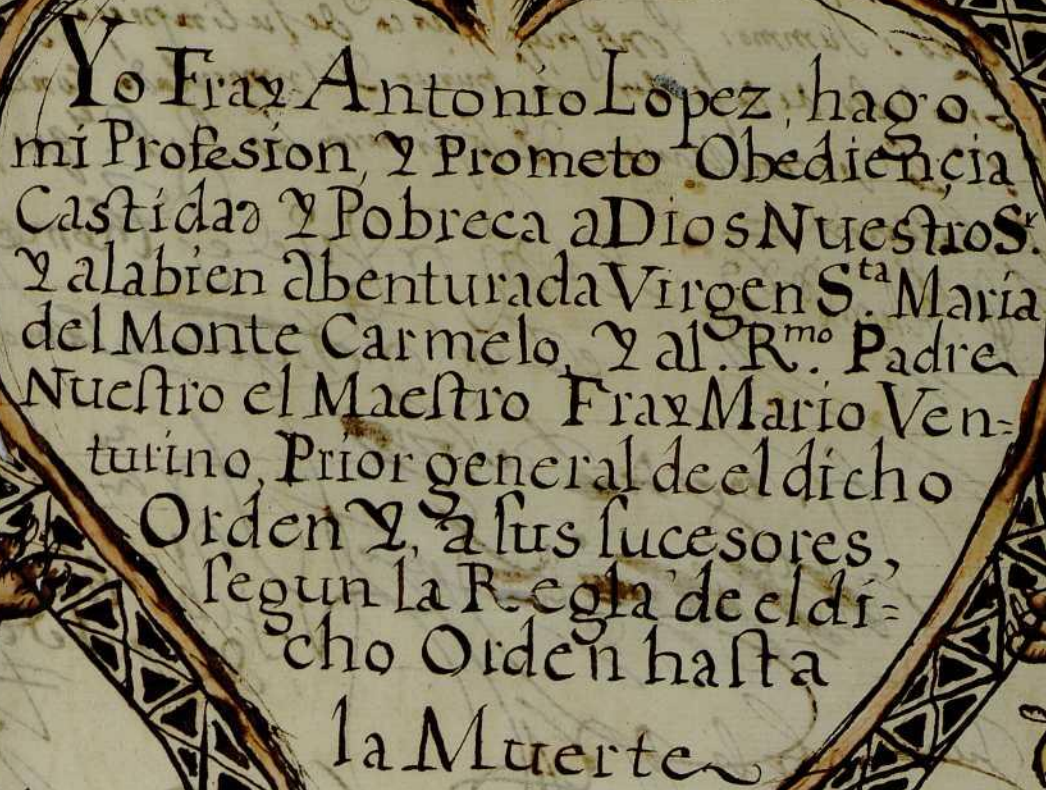 Yo Fray Antonio Lopez, hago
mi Profesion, Y Prometo Obediençia
Castidad Y Pobreca aDios NuestroSr.
Y alabien abenturada Virgen Sta. Maria
del Monte Carmelo, Y al. Rmo. Padre
Nuestro el Maestro Fray Mario Ven=
turino, Prior general de el dicho
Orden Y, a sus sucesores,
segun la Regla de el di=
cho Orden hasta
la Muerte